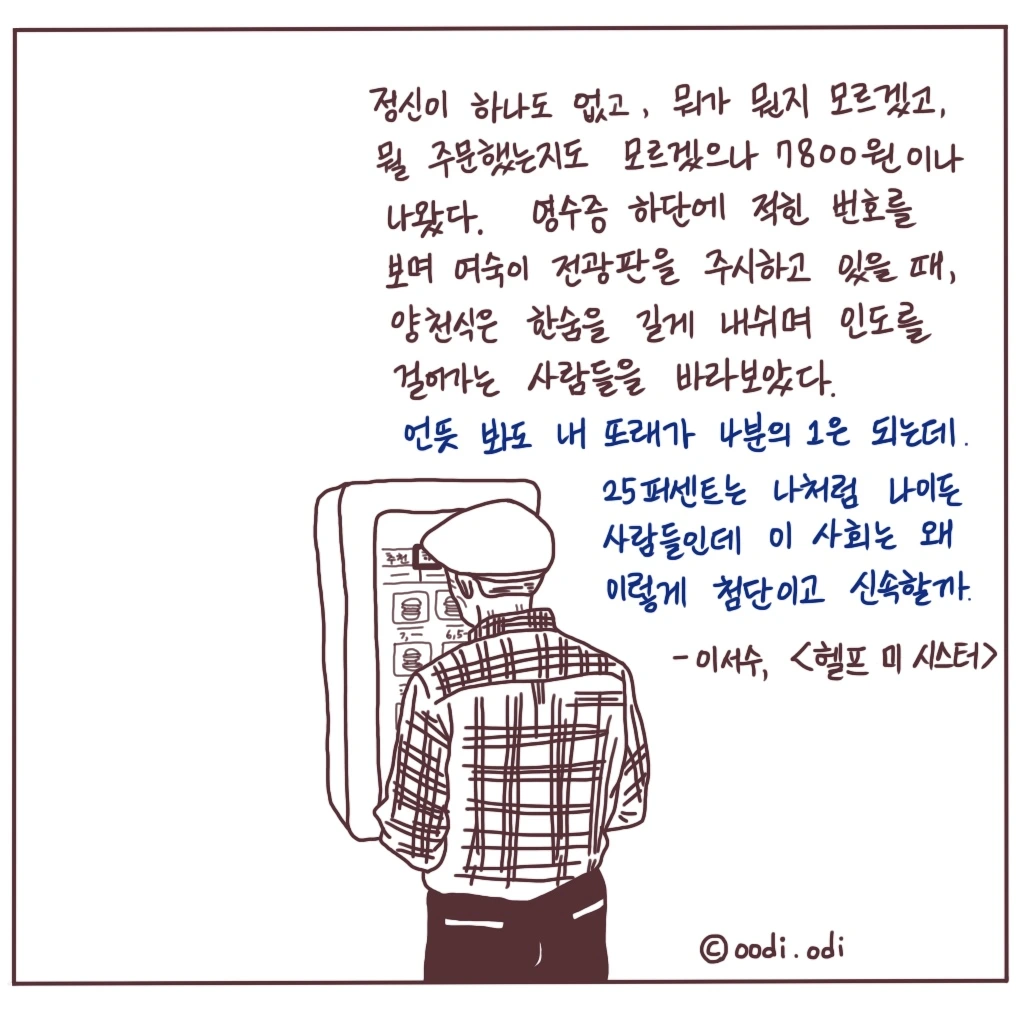 정신이 하나도 없고, 뭐가 뭔지 모르겠고,
뭘 주문했는지도 모르겠으나 7800원이나
나왔다. 영수증 하단에 적힌 번호를
보며 여숙이 전광판을 주시하고 있을 때,
양천식은 한숨을 길게 내쉬며 인도를
걸어가는 사람들을 바라보았다.
언뜻 봐도 내 또래가 4분의 1은 되는데.
25퍼센트는 나처럼 나이든
사람들인데 이 사회는 왜
이렇게 첨단이고 신속할까.
- 이서수, <헬프 미 시스터>
추천
7,- 6,5-
© oodi.odi